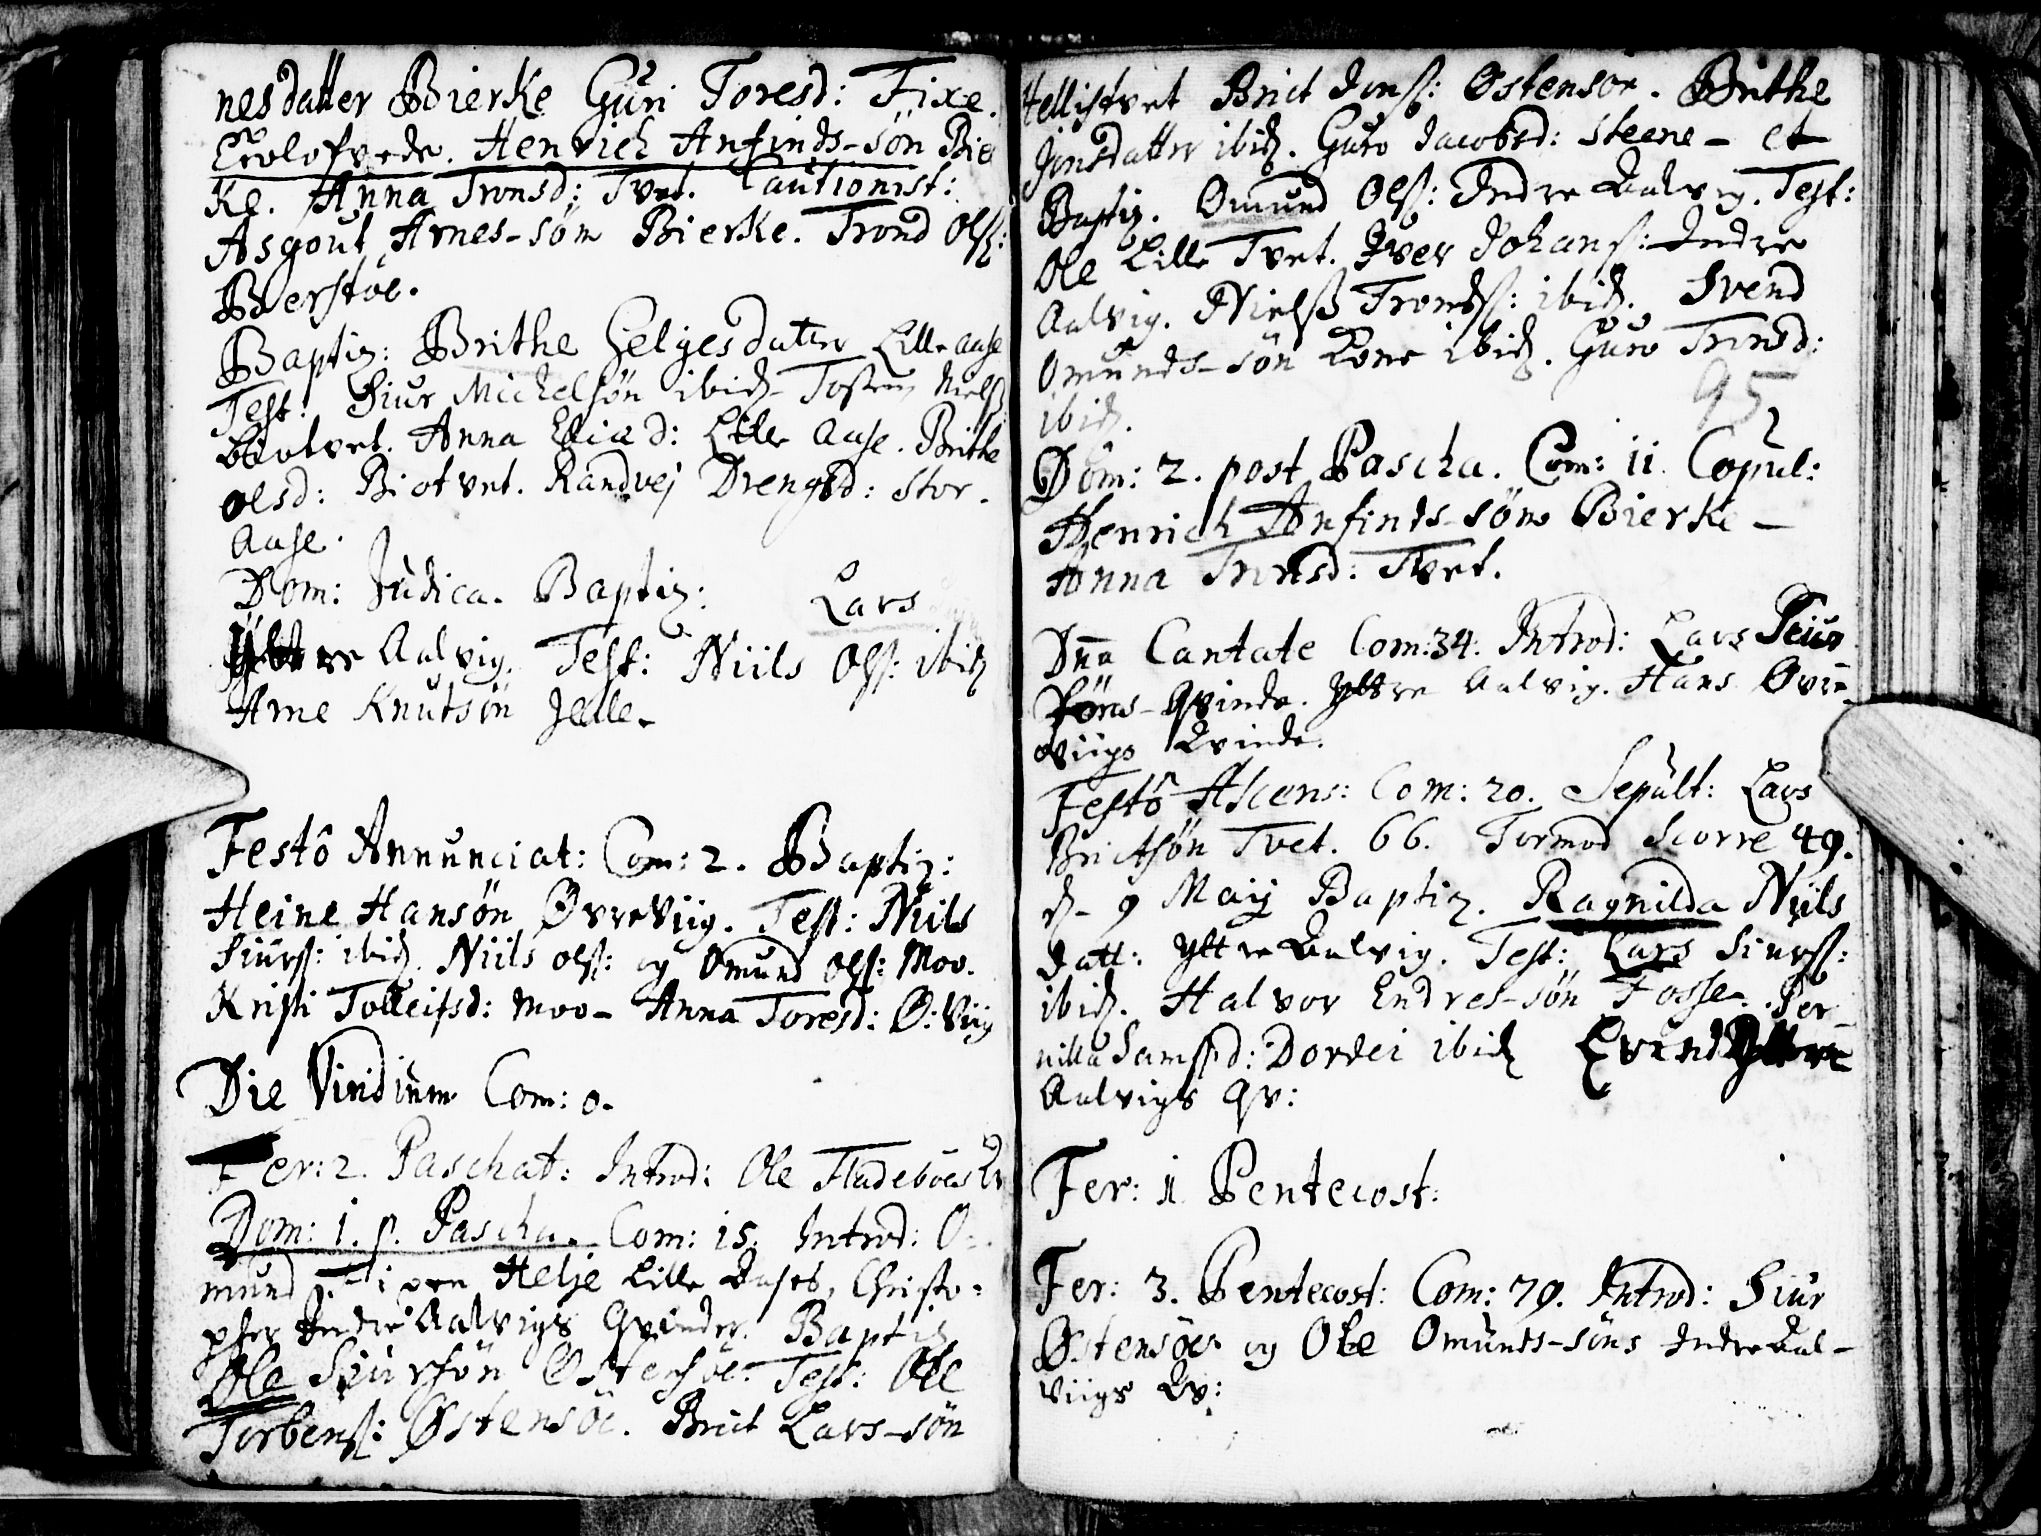 nesdatter Bierke Guri Toresd: Fixe.
Trolofvede. Henrich Anfinds-søn Bier
Ke. Anna Tronsd: Tvet. Cautionist:
Asgout Arnes-søn Bierke. Trond Olss:
Berstöe.
Baptiz: Brithe Helgesdatter Lille Aase
Test: Siur Michelsøn ibid. Tosten Nielss
Biotvet. Anna Eliad: Lille Aase. Brithe
olsd: Biotvet. Randvej Drengsd: Stor-
Aase.
Dom: Judica. Baptiz: Lars
Yttre Aalvig. Test: Niils Olss: ibid
Arne Knutsøn Jelle.
Festô Annunciat: Com: 2. Baptiz:
Heine Hansøn Øvreviig. Test: Niils
Siurss: ibid. Niils olss: og Omund Olss: Moo.
Kristi Tolleifsd: Moo- Anna Toresd: Ø: Viig
Die Viridium Com: 0.
Fer: 2. Paschat: Introd: Ole Fladeböes Qv
Dom: 1. p. Pascha. Com: 15. Introd: O-
mund Helje Lille Aases, Christo-
pher Indre Aalvigs Qvinder. Baptiz
Ola Siursøn Østensöe. Test: Ole
Torbenss: Østensöe. Brict Lars-søn
Hellistvet Brict Jonss: Østensöe. Brithe
Jonsdatter ibid. Guro Jacobsd: Steene- et
Baptiz. Omund Olss: Indre Aalvig. Test:
Ole Lille Tvet. Iver Johanss: Indre
Aalvig. Nielss Trondss: ibid. Svend
Omunds-søn Kone ibid. Guro Tronsd:
ibid.
95
Dom: 2. post Pascha. Com: 11. Copul:
Henrich Anfinds-søn Bierke-
Anna Tronsd: Tvet.
Dna Cantate Com: 34. Introd: Lars Siur
Søns-Qvinde. Yttre Aalvig. Hans Øvre-
viigs Kvinde.
Festô Ascens: Com: 20. Sepult: Lars
Brictsøn Tvet. 66. Tormod Scorre 49.
d- 9 Maij Baptiz. Ragnilda Niils
datt: Yttre Aalvig. Test: Lars Siurss:
ibid. Halvor Endres-søn Fosse. Per-
nilla Samsd: Dordei ibid Evind Yttre
Aalvigs Qv:
Fer: 11 Pentecost:
Fer: 3. Pentecost: Com: 79. Introd: Siur
Østensöes og Ole Omunds-söns Indre Aal-
viigs Kv: